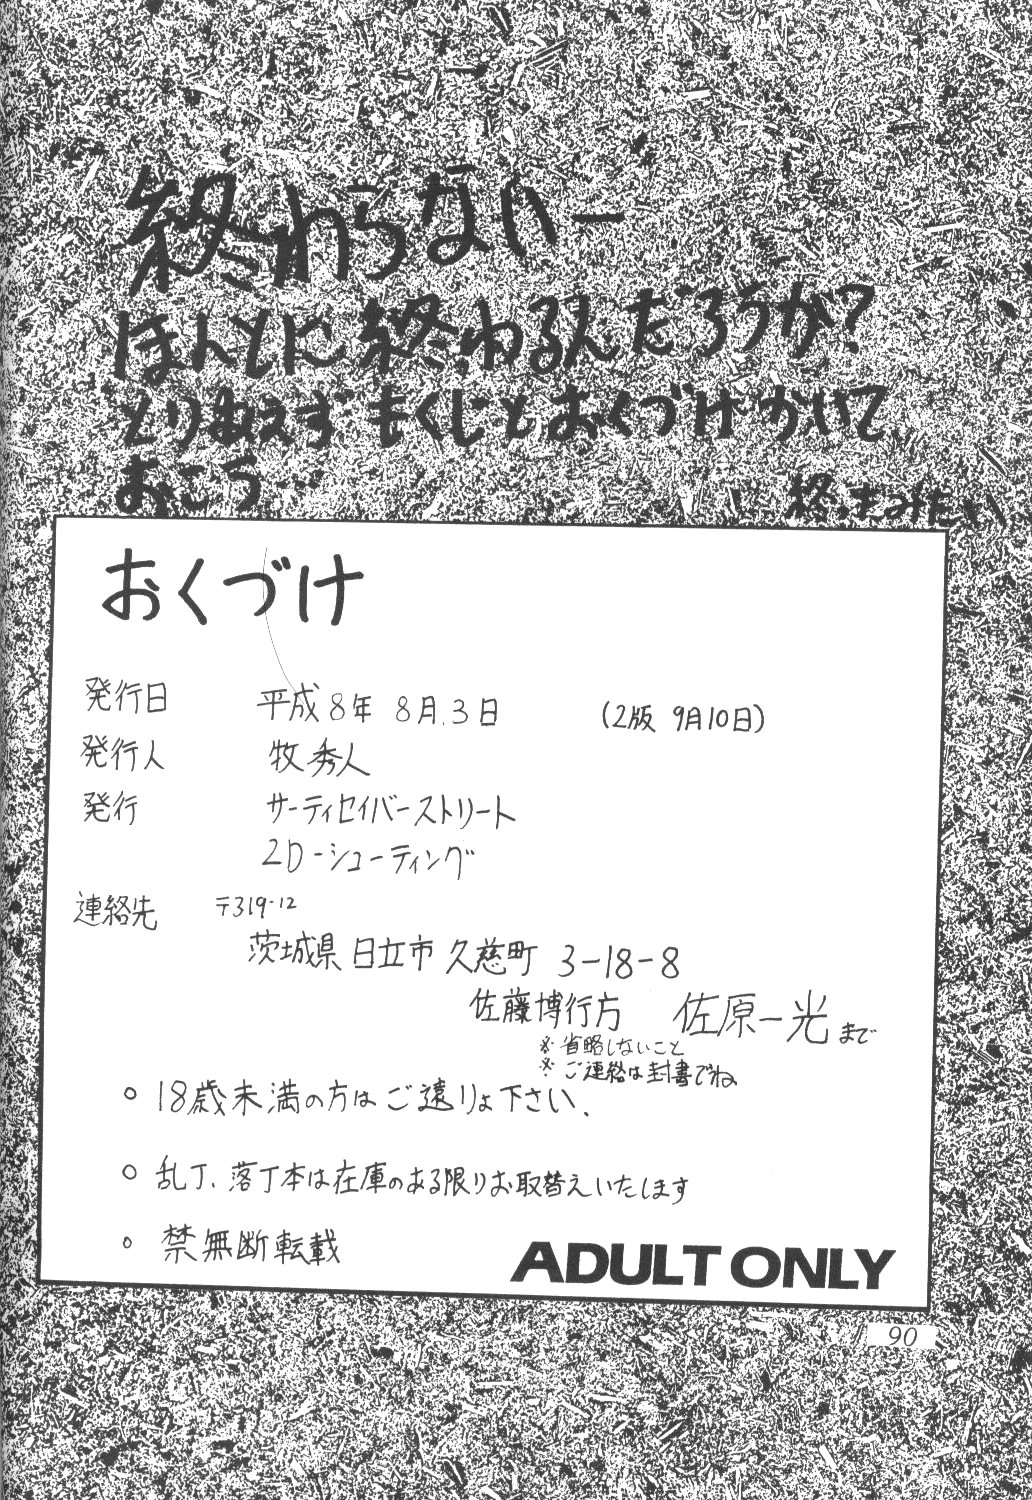 終わらないー
ほんとに終わるんだろうか?
とりあえずもくじとおくづけかいて
おこう…
終っちまみたい
おくづけ
発行日 平成8年 8月.3日 (2版 9月10日)
発行人 牧 秀人
発行 サーティセイバーストリート
2D-シューティング
連絡先 〒319-12
茨城県 日立市 久慈町 3-18-8
佐藤博行方 佐原一光まで
※ 省略しないこと
※ ご連絡は封書でね
○ 18歳未満の方はご遠りょ下さい.
○ 乱丁、落丁本は在庫のある限りお取替えいたします
○ 禁無断転載
ADULT ONLY
90